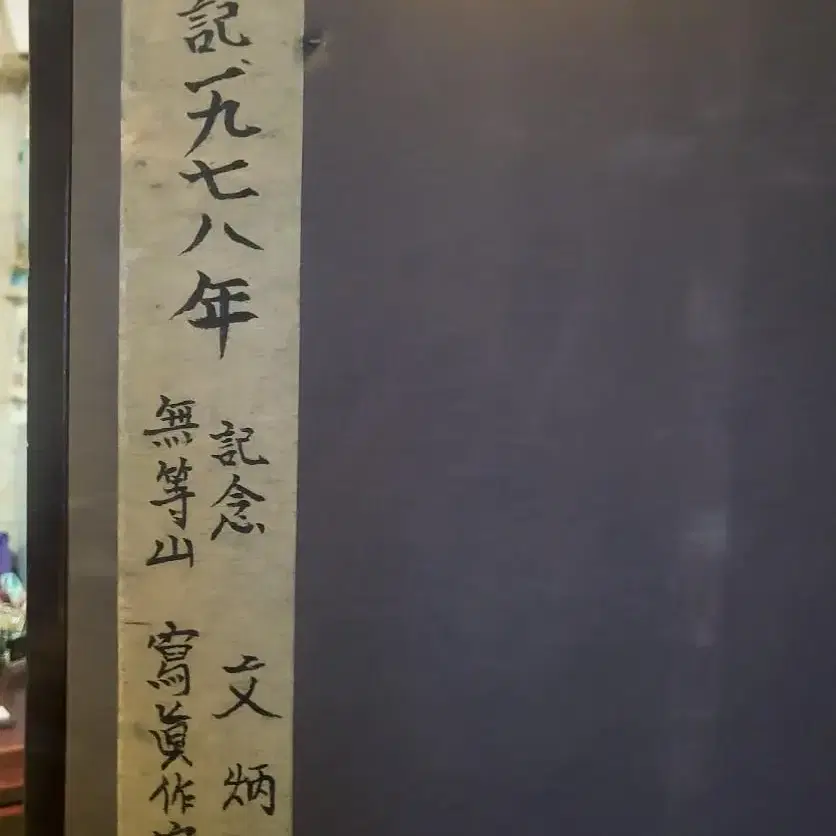 記一九七八年
記念 文炳
無等山 寫眞作